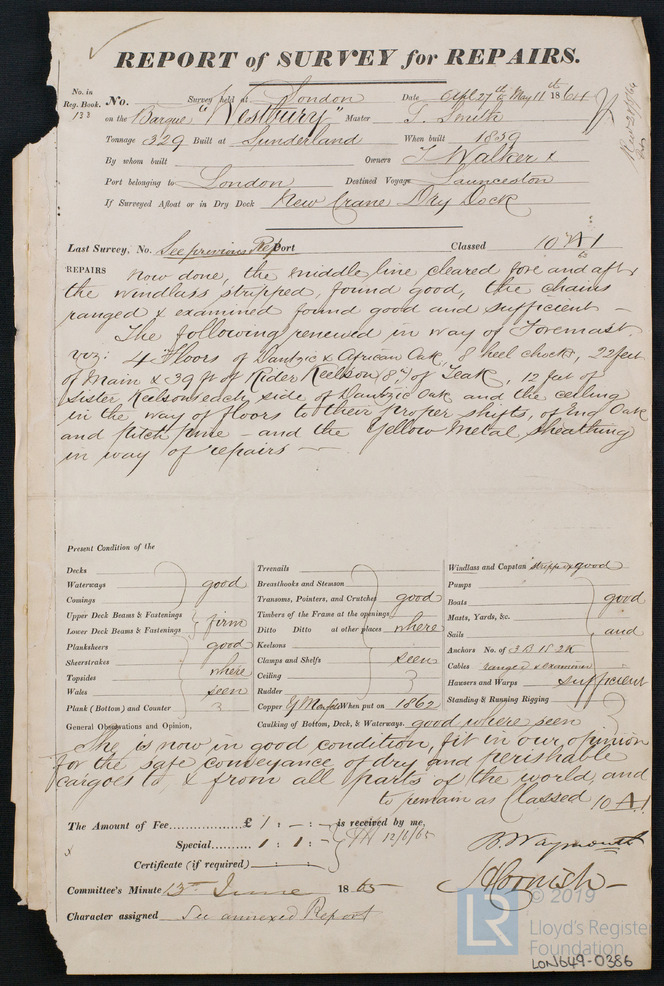 REPORT of SURVEY for REPAIRS.
No. in Reg. Book. 133
No. Survey held at London Date April 27th to May 11th 1864
on the Barque "Westbury" Master T. Smith
Tonnage 329 Built at Sunderland When built 1839
By whom built Owners T Walker &
Port belonging to London Destined Voyage Launceston
If Surveyed Afloat or in Dry Dock New Crane Dry Dock
Last Survey, No. See previous Report Classed 10 A 1
REPAIRS now done, the middle line cleared fore and aft,
the windlass stripped, found good, the chains
ranged & examined found good and sufficient –
The following renewed in way of Foremast
viz: 4 Floors of Dantzic & African Oak, 8 heel chocks, 22 feet
of Main & 39 ft of Rider Keelson (8 in) of Teak, 12 feet of
Sister Keelsons each side of Dantzic Oak and the ceiling
in the way of floors to their proper shifts, of Eng Oak
and pitch pine – and the Yellow Metal sheathing
in way of repairs —
Present Condition of the
Decks
Waterways good
Comings
Upper Deck Beams & Fastenings
Lower Deck Beams & Fastenings firm
Planksheers good
Sheerstrakes
Topsides where
Wales seen
Plank (Bottom) and Counter
Treenails
Breasthooks and Stemson
Transoms, Pointers, and Crutches good
Timbers of the Frame at the openings
Ditto Ditto at other places where
Keelsons
Clamps and Shelfs seen
Ceiling
Rudder
Copper Y Metal When put on 1862
Windlass and Capstan stripped good
Pumps
Boats good
Masts, Yards, &c.
Sails and
Anchors No. of 3 B 1 S 2 K
Cables ranged & examined
Hawsers and Warps sufficient
Standing & Running Rigging
General Observations and Opinion, Caulking of Bottom, Deck, & Waterways. good where seen
She is now in good condition, fit in our opinion
for the safe conveyance of dry and perishable
cargoes to & from all parts of the world and
to remain as Classed 10 A 1
The Amount of Fee £ 1 : – : – is received by me,
Special 1 : 1 : 12/6/65
Certificate (if required)
B. Waymouth
Cornish
Committee's Minute 13th June 1865
Character assigned See annexed Report
© 2019
LR
Lloyd's Register
Foundation
LON649-0386